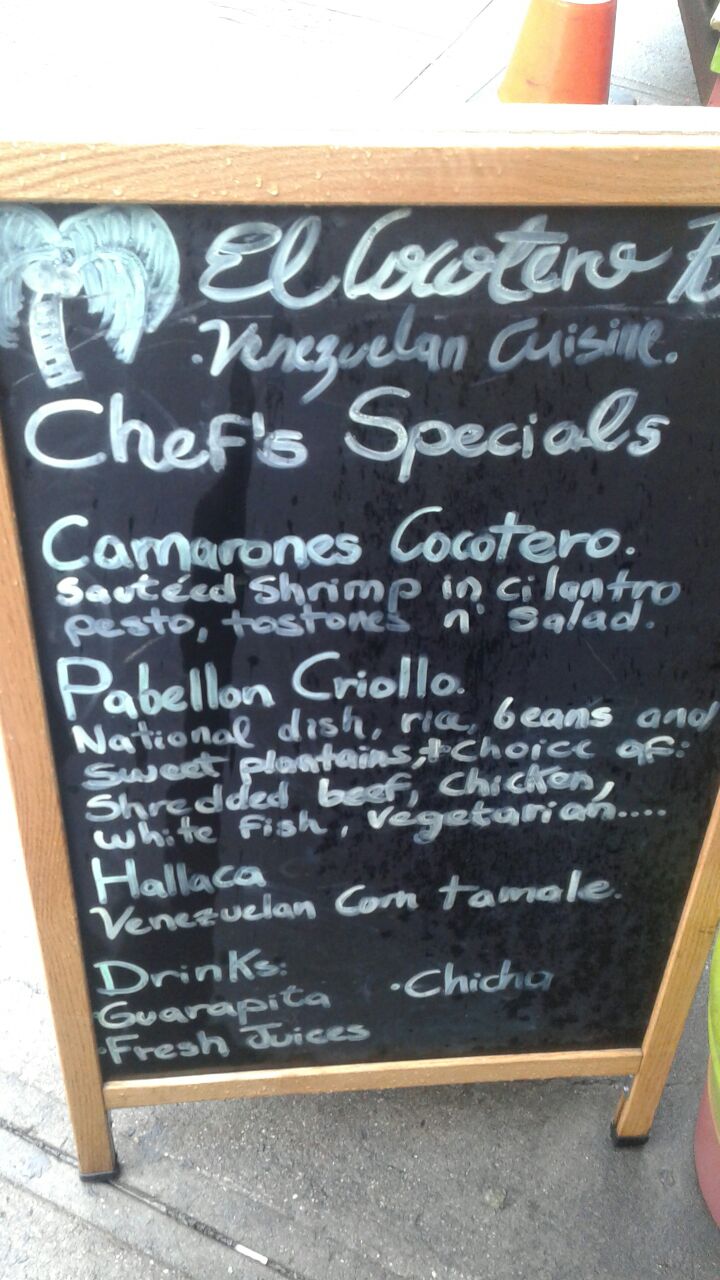 El Cocotero
Venezuelan Cuisine.
Chef's Specials
Camarones Cocotero.
Sautéed Shrimp in cilantro
pesto, tostones n' Salad.
Pabellon Criollo.
National dish, rice, beans and
Sweet plantains, + choice of:
Shredded beef, chicken,
white fish, vegetarian....
Hallaca
Venezuelan Corn tamale.
Drinks:
·Guarapita ·Chicha
·Fresh Juices